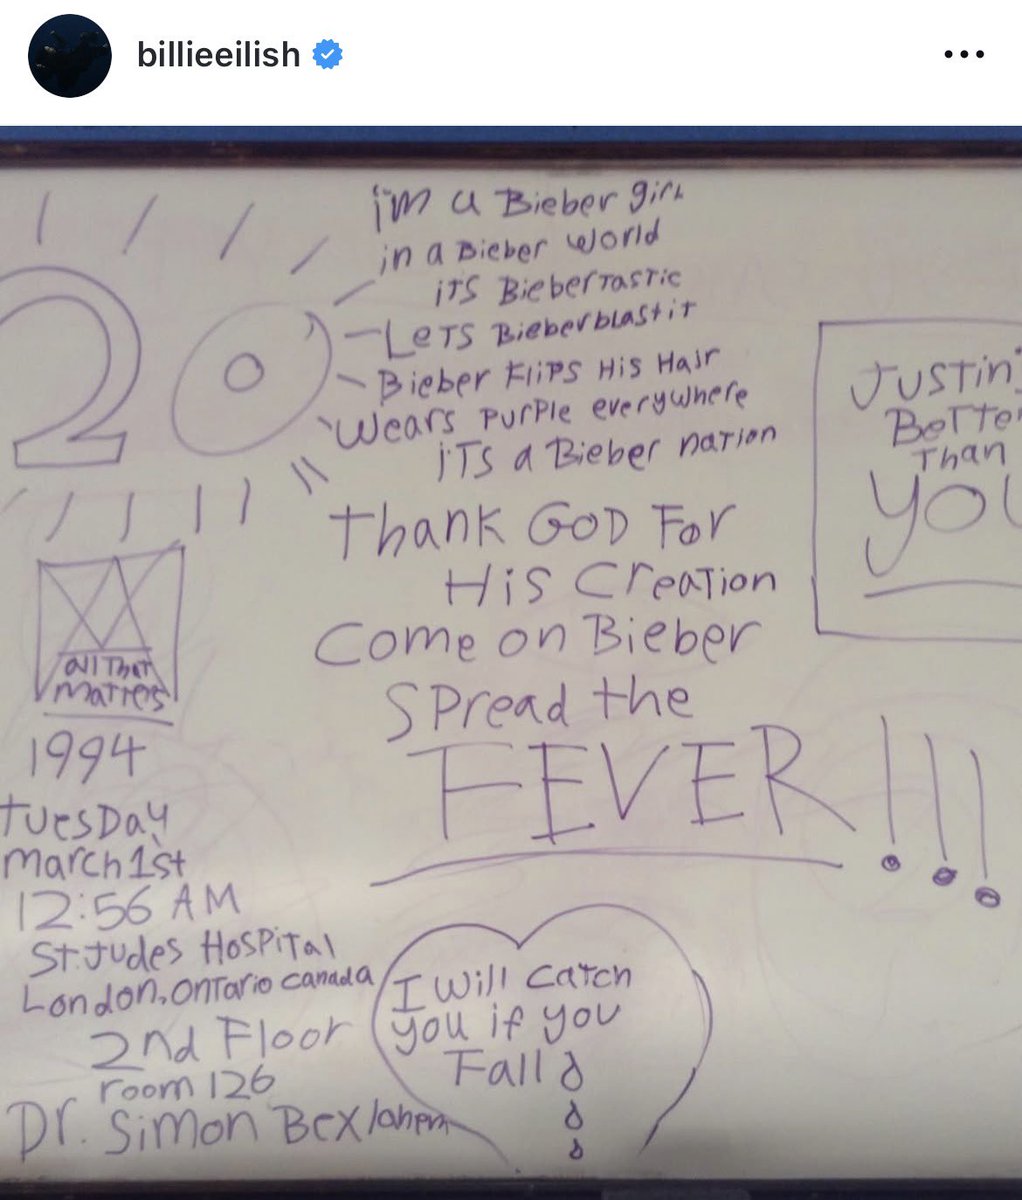 billieeilish
I'm a Bieber girl
in a Bieber world
iTS BieberTasTic
LeTS Bieberblastit
Bieber Flips His Hair
Wears Purple everywhere
iTS a Bieber nation
20
Thank GOD For
His Creation
Come on Bieber
Spread the
FEVER!!!
Justin'
Bette
Than
YOU
all That
Matters
1994
Tuesday
March 1st
12:56 AM
St. Judes Hospital
London, Ontario Canada
2nd Floor
room 126
Dr. Simon
I will catch
you if you
Fall